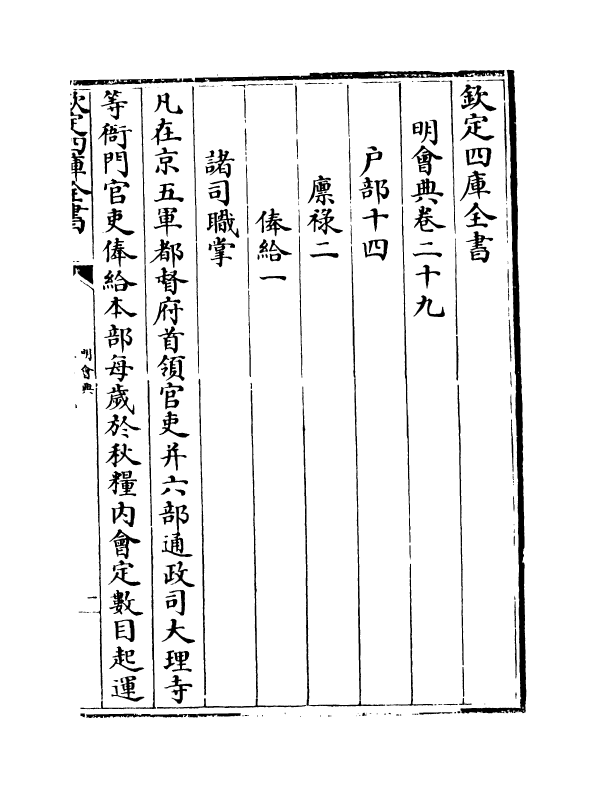 欽定四庫全書
明會典卷二十九
户部十四
廪祿二
俸給一
諸司職掌
凡在京五軍都督府首領官吏并六部通政司大理寺
等衙門官吏俸給本部每歲於秋糧内會定數目起運
欽定四庫全書
明會典